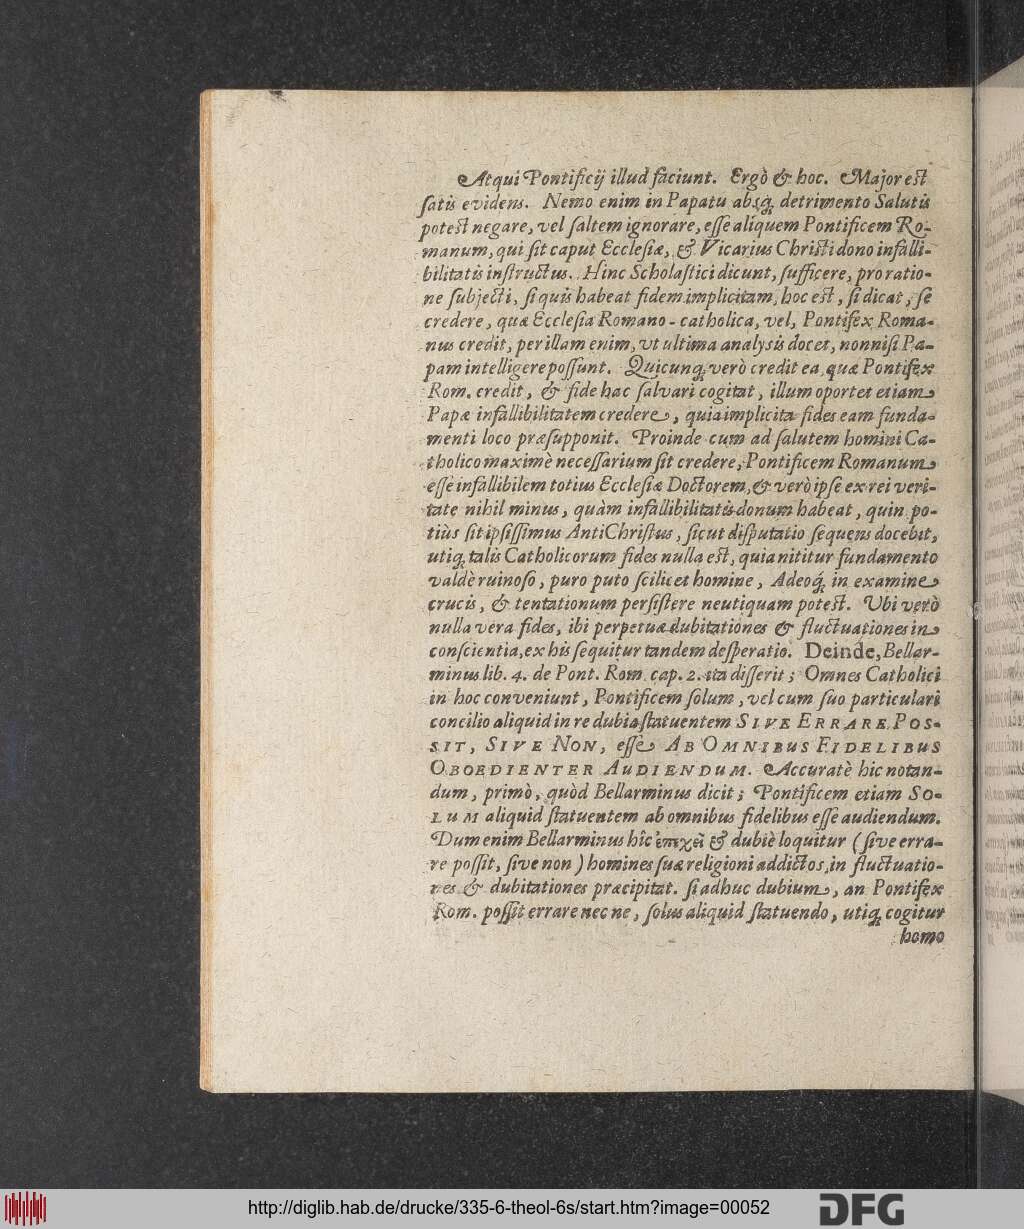 Atqui Pontificij illud faciunt. Ergò & hoc. Major est
ſatis evidens. Nemo enim in Papatu absq; detrimento Salutis
potest negare, vel ſaltem ignorare, eſſe aliquem Pontificem Ro-
manum, qui ſit caput Eccleſiæ, & Vicarius Chriſti dono infalli-
bilitatis inſtructus. Hinc Scholaſtici dicunt, ſufficere, pro ratio-
ne ſubjecti, ſi quis habeat fidem implicitam, hoc est, ſi dicat, ſe
credere, quæ Eccleſia Romano-catholica, vel, Pontifex Roma-
nus credit, per illam enim, ut ultima analysis docet, nonniſi Pa-
pam intelligere poſſunt. Quicunq; verò credit ea, quæ Pontifex
Rom. credit, & fide hac ſalvari cogitat, illum oportet etiam
Papæ infallibilitatem credere, quia implicita fides eam funda-
menti loco præſupponit. Proinde cum ad ſalutem homini Ca-
tholico maximè neceſſarium ſit credere, Pontificem Romanum
eſſe infallibilem totius Eccleſiæ Doctorem, & verò ipſe ex rei veri-
tate nihil minus, quàm infallibilitatis donum habeat, quin po-
tiùs ſit ipſiſſimus AntiChriſtus, ſicut diſputatio ſequens docebit,
utiq; talis Catholicorum fides nulla est, quia nititur fundamento
valdè ruinoſo, puro puto ſcilicet homine, Adeoq́; in examine
crucis, & tentationum perſiſtere neutiquam potest. Ubi verò
nulla vera fides, ibi perpetuæ dubitationes & fluctuationes in
conſcientia, ex his ſequitur tandem deſperatio. Deinde, Bellar-
minus lib. 4. de Pont. Rom. cap. 2. ita diſſerit; Omnes Catholici
in hoc conveniunt, Pontificem ſolum, vel cum ſuo particulari
concilio aliquid in re dubia ſtatuentem SIVE ERRARE POS-
SIT, SIVE NON, eſſe AB OMNIBUS FIDELIBUS
OBOEDIENTER AUDIENDUM. Accuratè hic notan-
dum, primò, quòd Bellarminus dicit; Pontificem etiam SO-
LUM aliquid ſtatuentem ab omnibus fidelibus eſſe audiendum.
Dum enim Bellarminus hîc ἐπεχεῖ & dubiè loquitur (ſive erra-
re poſſit, ſive non) homines ſuæ religioni addictos, in fluctuatio-
nes & dubitationes præcipitat. ſi adhuc dubium, an Pontifex
Rom. poſſit errare nec ne, ſolus aliquid ſtatuendo, utiq; cogitur
homo
http://diglib.hab.de/drucke/335-6-theol-6s/start.htm?image=00052
DFG